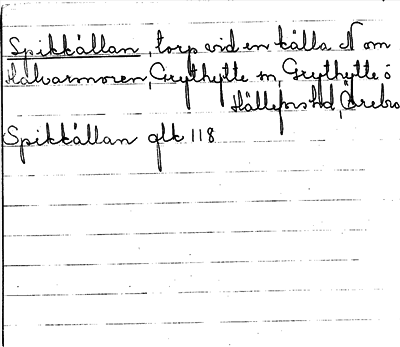 Spikkällan, torp vid en källa N om
Halvarmoren, Grythytte sn, Grythytte ö
Hällefors hd, Örebro
Spikkällan glk 118